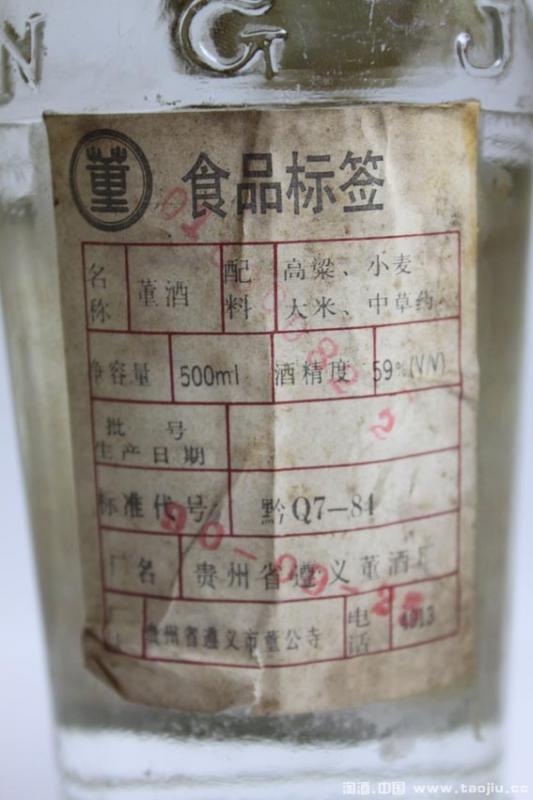 N G J
董 食品标签
名称 董酒 配料 高粱、小麦
大米、中草药
净容量 500ml 酒精度 59%(V/V)
批号
生产日期
标准代号 黔Q7-84
厂名 贵州省遵义董酒厂
贵州省遵义市董公寺 电话 4913
淘酒.中国 www.taojiu.cc